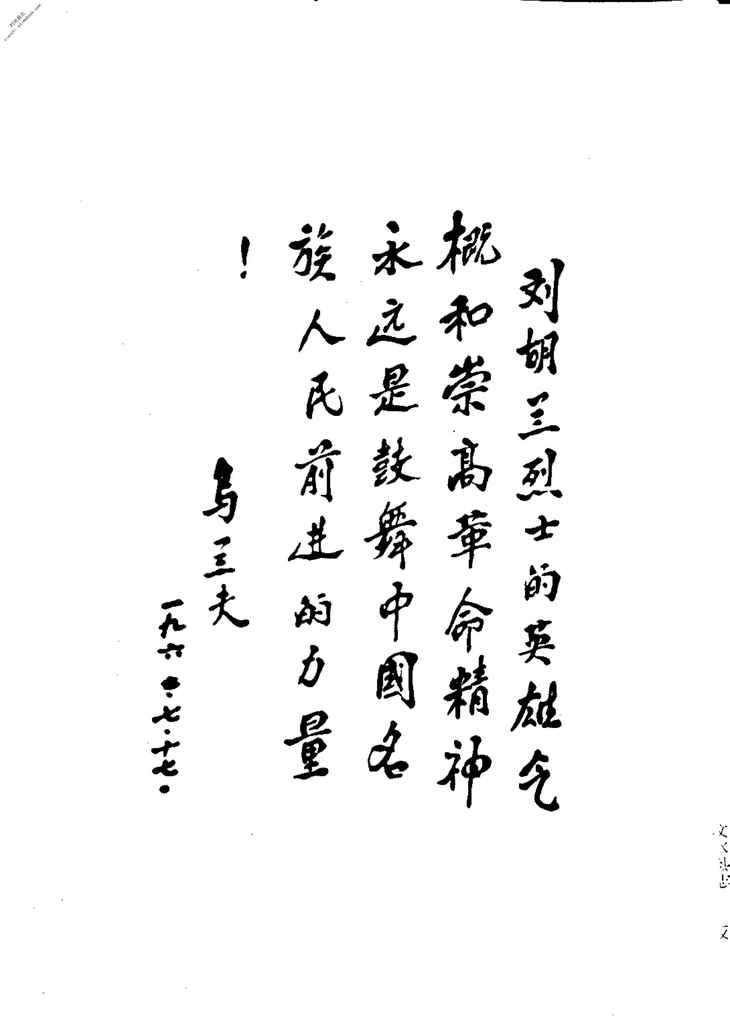 刘胡兰烈士的英雄气
概和崇高革命精神
永远是鼓舞中國各
族人民前进的力量
！
乌兰夫
一九六〇·七·十七·
文水县志